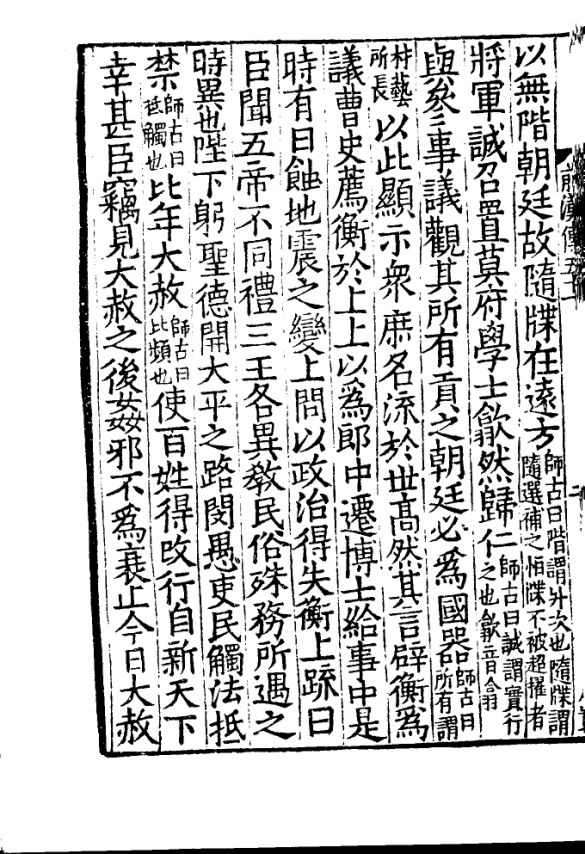 以無階朝廷故隨牒在遠方師古曰階謂升次也隨牒謂隨選補之恒牒不被超擢者
將軍誠召置莫府學士歙然歸仁師古曰誠謂實行之也歙音翕
與參事議觀其所有貢之朝廷必爲國器師古曰所有謂
材藝所長以此顯示衆庶名流於世高然其言辟衡爲
議曹史薦衡於上上以爲郎中遷博士給事中是
時有日蝕地震之變上問以政治得失衡上疏曰
臣聞五帝不同禮三王各異教民俗殊務所遇之
時異也陛下躬聖德開大平之路閔愚吏民觸法抵
禁師古曰抵觸也比年大赦師古曰比頻也使百姓得改行自新天下
幸甚臣竊見大赦之後姦邪不爲衰止今日大赦